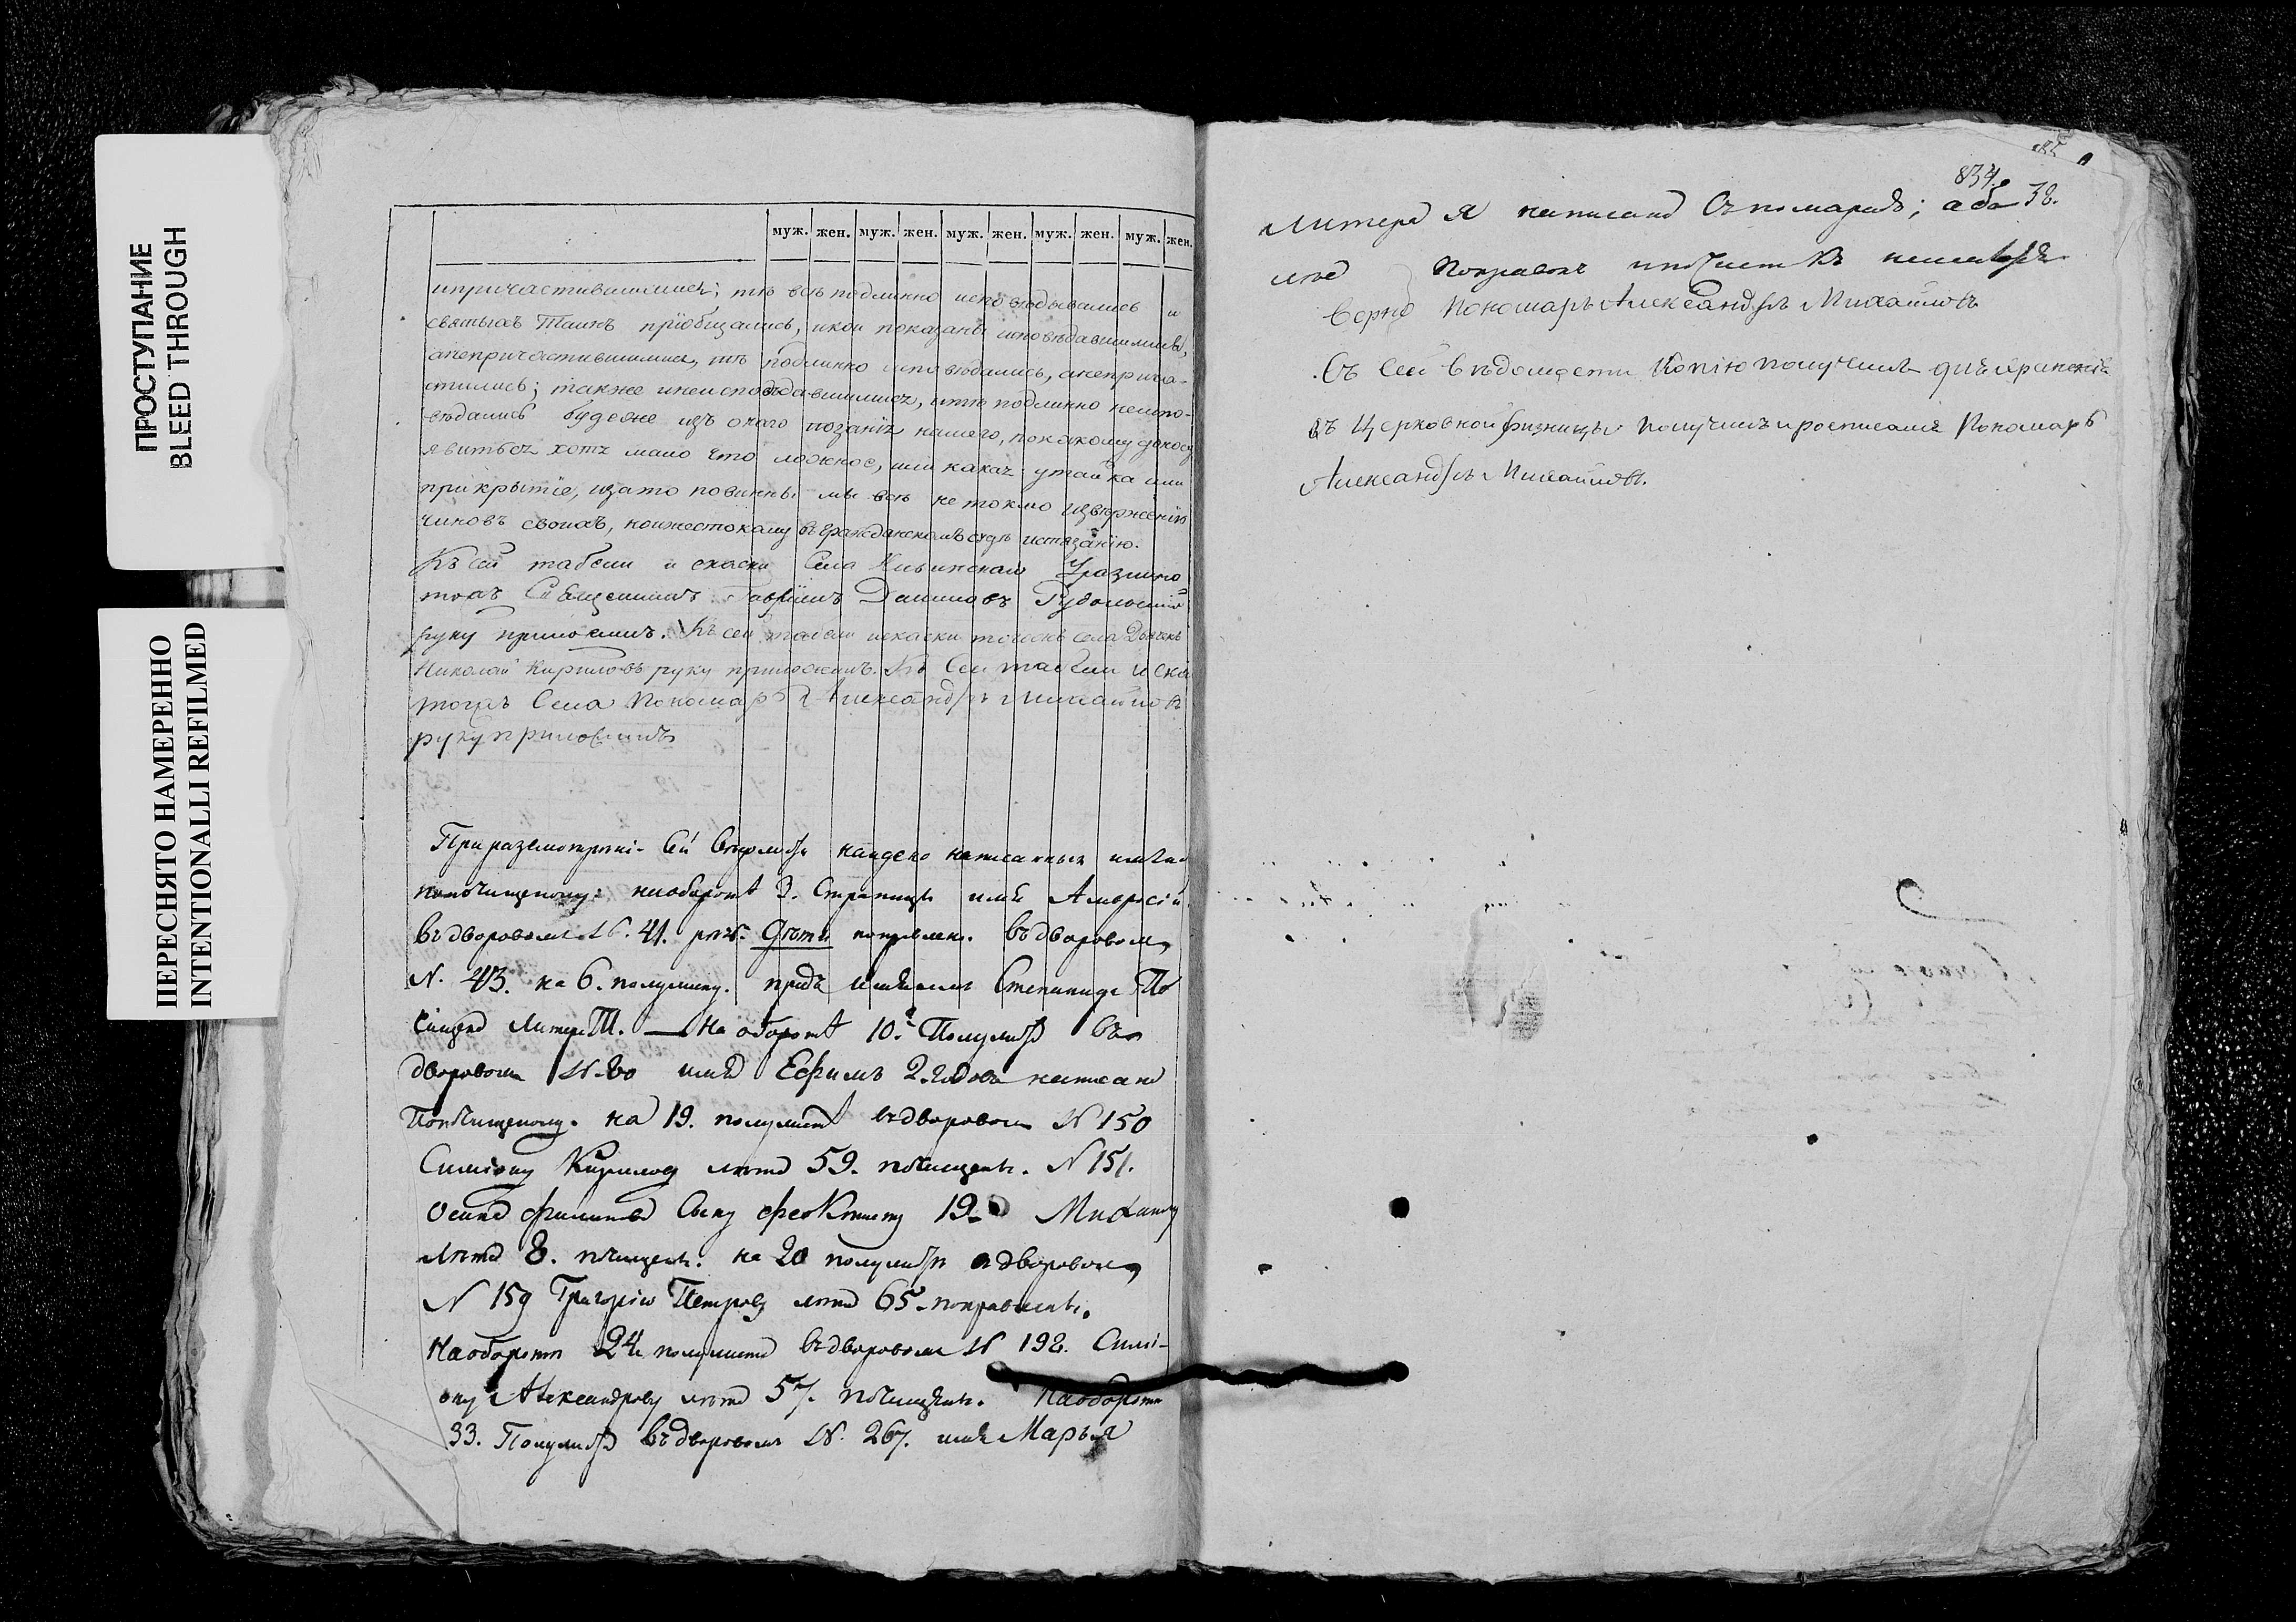 ПРОСТУПАНИЕ
BLEED THROUGH
ПЕРЕСНЯТО НАМЕРЕННО
INTENTIONALLI REFILMED
муж. жен. муж. жен. муж. жен. муж. жен. муж. жен.
ипричастившимися; тѣ всѣ подлинно исповѣдывались и
святыхъ Таинъ пріобщались, икои показаны исповѣдавшимись,
анепричастившимися, тѣ подлинно исповѣдались, анеприча-
стились; также инеисповѣдавшимися, итѣ подлинно неиспо-
вѣдались будеже изъ онаго нашего, покакому доносу
явиться хотя мало что ложное, или какая утайка или
прикрытіе, изато повинны мы всѣ нетокмо изверженію
чиновъ своихъ, ноижестокому въгражданскомъ судѣ истязанію.
Къ сей табели и скаски Села
тогожъ Священникъ Гавріилъ Даниловъ
руку приложилъ. Къ сей табели искаски тогожъ села Дьячекъ
Николай Кириловъ руку приложилъ. Къ Сей табели и ска
тогожъ Села Пономарь Александръ Михайловъ
руку приложилъ
При разсмотреніи Сей найдено написанныхъ
наоборотѣ 3. Страницы имя Амвросій
въ дворовомъ N. 41. Дѣти поправлено. въ дворовомъ
N. 43. на 6. полулисту. предъ имянемъ Степанида По
чищено Литера Т. — На оборотѣ 10. Полулиста въ
дворовомъ N. 80 имя Ефимъ 2. годовъ написано
Почищеному. на 19. полулистѣ въ дворовомъ N 150
Симіону Кирилову лѣта 59. почищены. N 151.
Осипа Филипова Сыну Феоктисту 19. Михаилу
Лѣта 8. почищены. на 20 полулистѣ въ дворовомъ
N 159 Григорію Петрову лѣта 65. поправлены.
Наоборотѣ 24. полулиста въ дворовомъ N 192. Симі-
ону Александрову лѣта 57. почищены. Наоборотѣ
33. Полулиста въ дворовомъ N. 267. имя Марья
834.
Литера Я написана 38.
поправокъ
Верно Пономарь Александръ Михайловъ
Съ Сей вѣдомости Копію получилъ для храненія
въ Церковной ризницы получилъ и росписался Пономарь
Александръ Михайловъ.